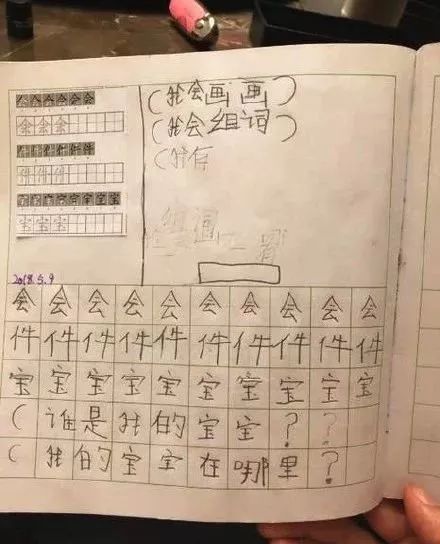 会会会会会会会
会会会
件件件件件件
件件件
宝宝宝宝宝宝宝宝
宝宝宝
(我会画画)
(我会组词)
(我有
组词
2018.5.9
会会会会会会会会会会
件件件件件件件件件件
宝宝宝宝宝宝宝宝宝宝
(谁是我的宝宝??
(我的宝宝在哪里?